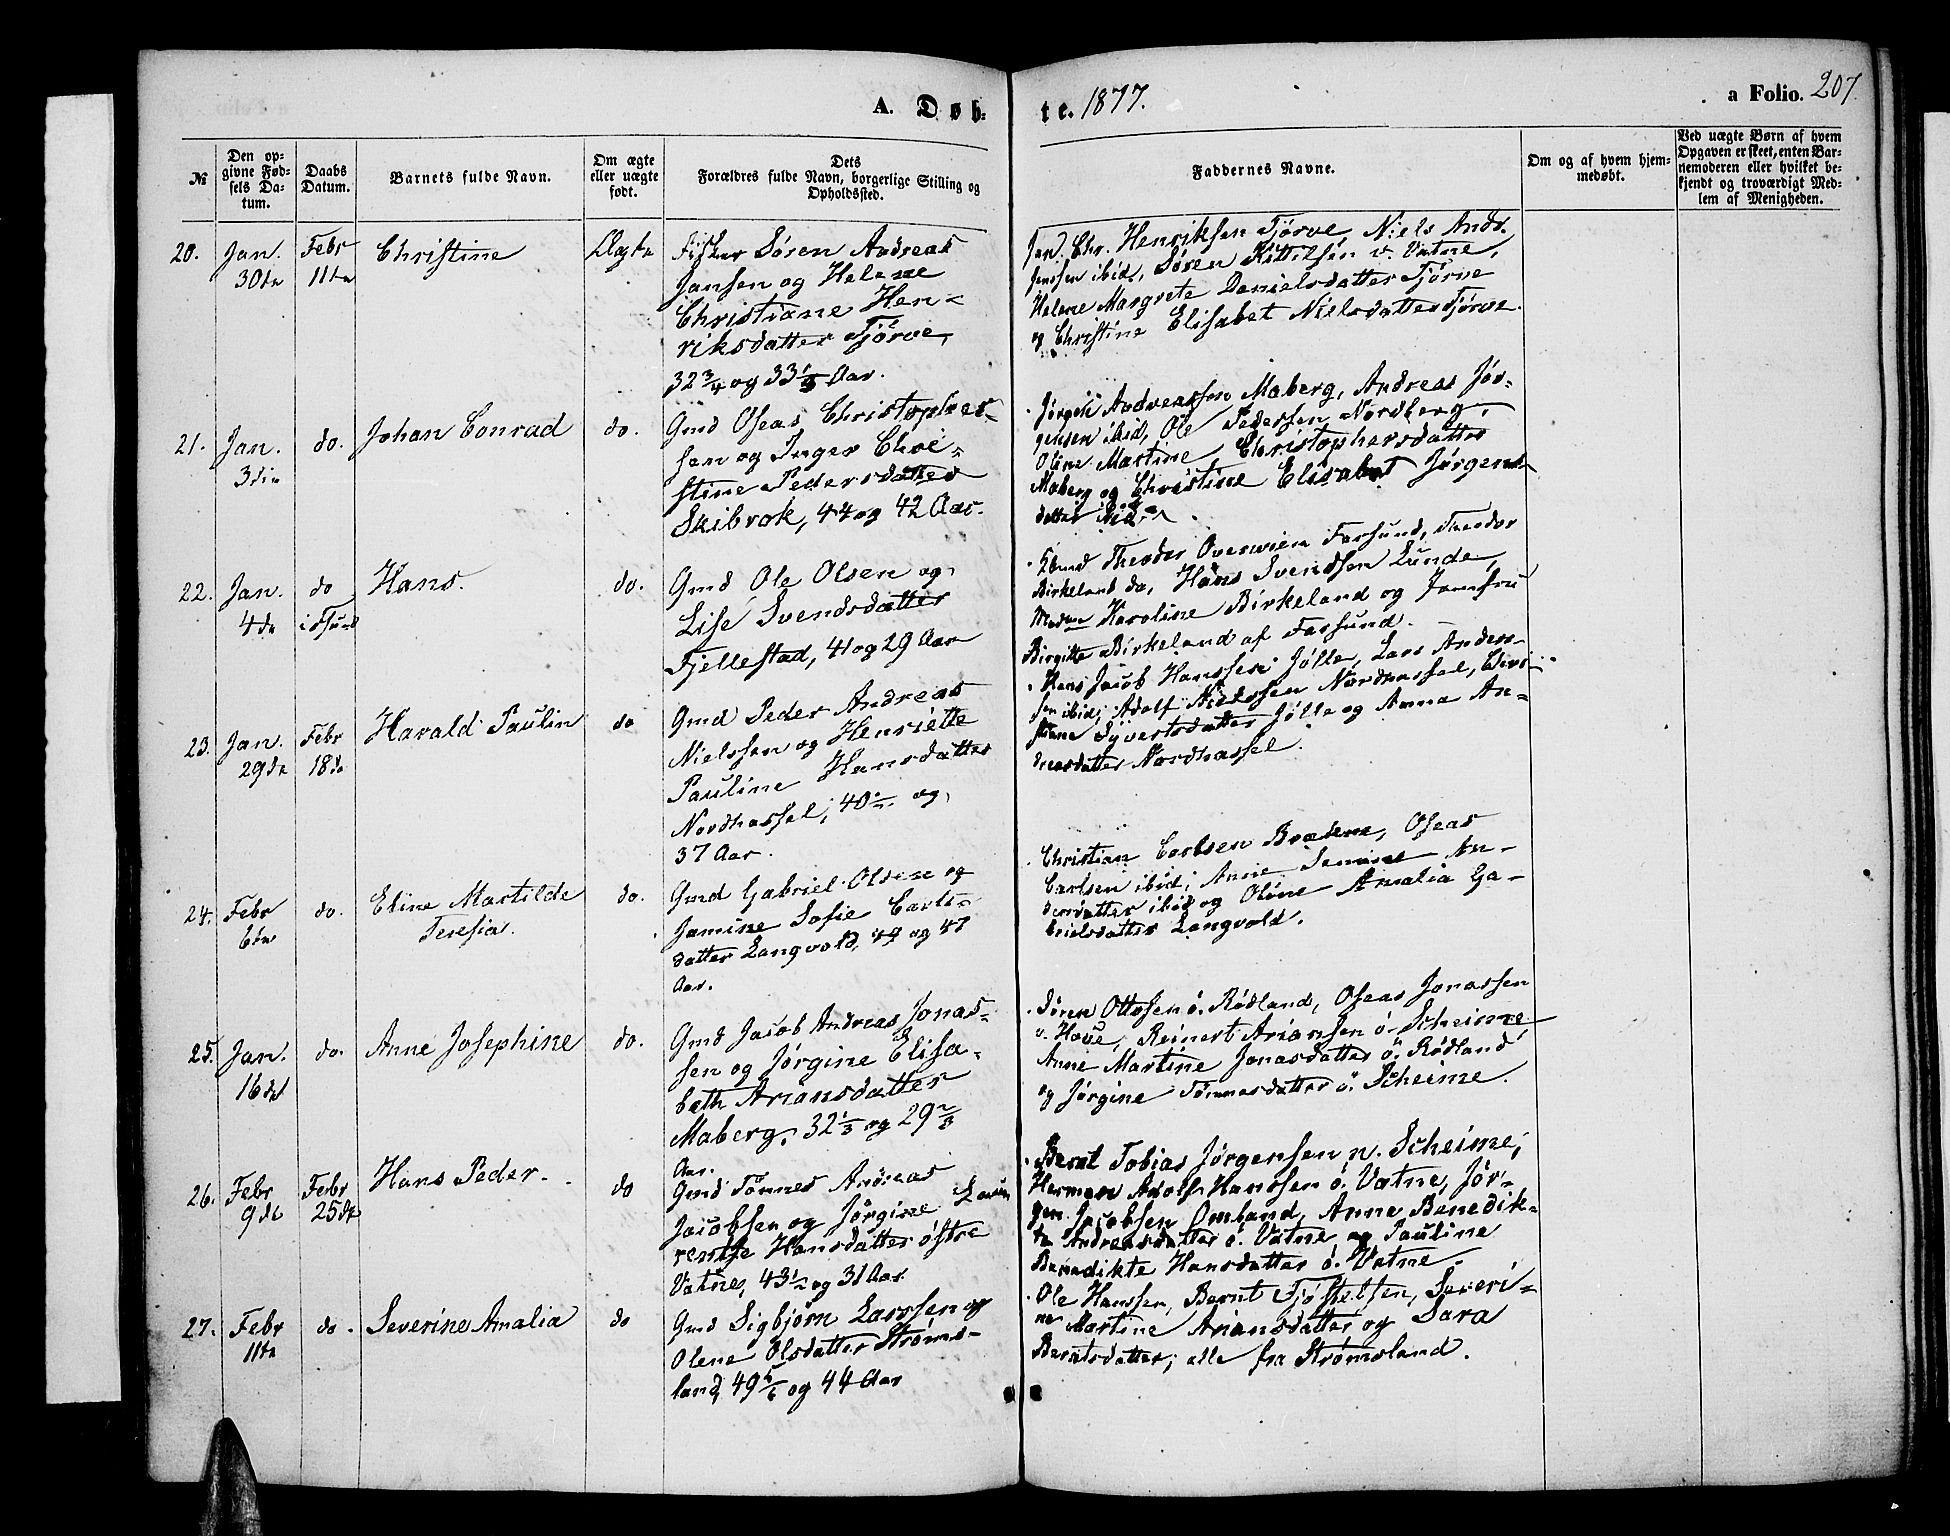 A. Døb-
te. 1877.
a Folio. 207
№
Den op-
givne Fød-
sels Da-
tum.
Daabs
Datum.
Barnets fulde Navn.
Om ægte
eller uægte
født.
Dets
Forældres fulde Navn, borgerlige Stilling og
Opholdssted.
Faddernes Navne.
Om og af hvem hjem-
medøbt.
Ved uægte Børn af hvem
Opgaven er skeet, enten Bar-
nemoderen eller hvilket be-
kjendt og troværdigt Med-
lem af Menigheden.
20.
Jan.
30te
Febr
11te
Christine
Ægte
Fisker Søren Andreas
Jansen og Helene
Christiane Hen-
riksdatter Tjørve,
32 3/4 og 33 1/3 Aar.
Chr. Henriksen Tjørve, Niels Andr.
Jenssen ibid, Søren Kittilsen v. Vatne,
Helene Margrete Danielsdatter Tjørve
og Christine Elisabet Nielsdatter Tjørve.
21.
Jan.
3die
do.
Johan Conrad
do.
Gmd Oseas Christopher-
sen og Inger Chri-
stine Pedersdatter
Skibrok, 44 og 42 Aar.
Jørgen Andreassen Maberg, Andreas Jør-
gensen ibid, Ole Pedersen Nordberg,
Oline Martine Christophersdatter
Maberg og Christine Elisabet Jørgens-
datter ibid.
22.
Jan.
4de
do
i Fsund
Hans.
do.
Gmd Ole Olsen og
Lise Svendsdatter
Fjellestad, 41 og 29 Aar
Theodor Overwien Farsund, Theodor
Birkeland do, Hans Svendsen Lunde,
Madam Karoline Birkeland og Jomfru
Birgitte Birkeland af Farsund.
23.
Jan.
29de
Febr
18de
Harald Paulin
do
Gmd Peder Andreas
Nielssen og Henriette
Pauline Hansdatter
Nordhassel, 40 1/2 og
37 Aar.
Hans Jacob Hanssen Jølle, Lars Anders-
sen ibid, Adolf Nielssen Nordhassel, Chri-
stiane Syvertsdatter Jølle og Anna An-
dreasdatter Nordhassel.
24.
Febr
6te
do.
Eline Martilde
Teresia.
do.
Gmd Gabriel Olsen og
Jamine Sofie Carls-
datter Langvold, 49 og 47
Aar.
Christian Carlsen Brædene, Oseas
Carlsen ibid, Anne Jamine An-
dersdatter ibid og Oline Amalia Ga-
brielsdatter Langvold.
25.
Jan.
16de
do.
Anne Josephine
do.
Gmd Jacob Andreas Jonas-
sen og Jørgine Elisa-
beth Ariansdatter
Maberg, 32 1/3 og 29 2/3
Aar.
Søren Ottosen ø. Rødland, Oseas Jonassen
v. Hove, Reinert Arianssen ø. Scheime
Anne Martine Jonasdatter ø. Rødland
og Jørgine Tønnesdatter ø. Scheime.
26.
Febr
9de
Febr
25de
Hans Peder.
do
Gmd Tønnes Andreas
Jacobsen og Jørgine Lau-
rentse Hansdatter østre
Vatne, 43 1/2 og 31 Aar
Bernt Tobias Jørgensen n. Scheime,
Herman Adolf Hanssen ø. Vatne, Jør-
gen Jacobsen Omland, Anne Benedik-
te Andreasdatter ø. Vatne og Pauline
Benedikte Hansdatter ø. Vatne.
27.
Febr
11te
do.
Severine Amalia
do
Gmd Sigbjørn Larssen og
Olene Olsdatter Strøms-
land, 49 5/6 og 44 Aar
Ole Hanssen, Bernt Tjøstelsen, Severi-
ne Martine Ariansdatter og Sara
Berntsdatter; alle fra Strømsland.